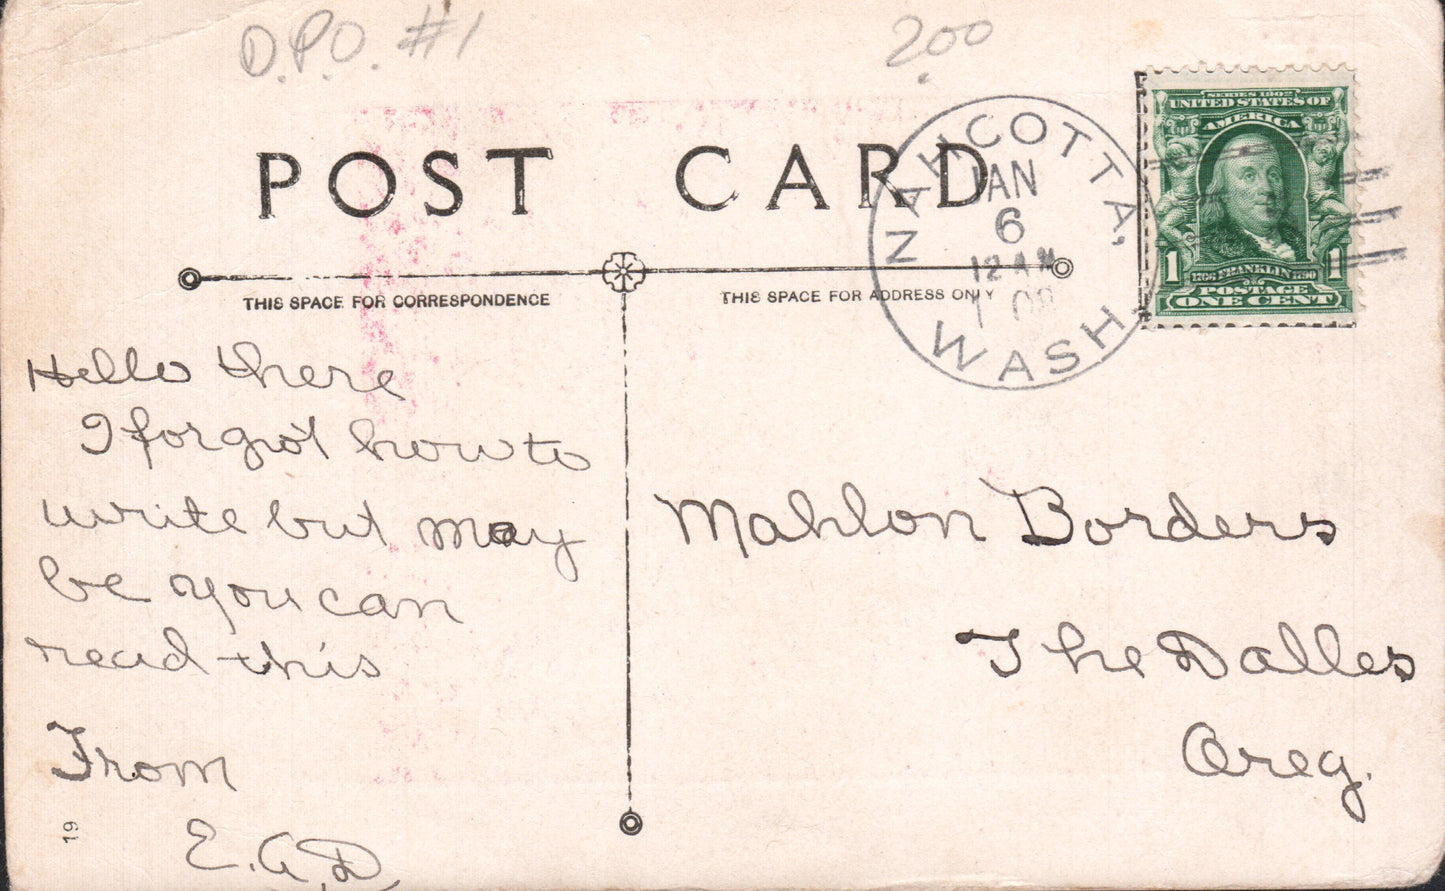 D.P.O. #1
2.00
POST CARD
THIS SPACE FOR CORRESPONDENCE
THIS SPACE FOR ADDRESS ONLY
NAHCOTTA,
JAN
6
12 AM
WASH.
SERIES 1902
UNITED STATES OF
AMERICA
1 1706 FRANKLIN 1790 1
POSTAGE
ONE CENT
Hello there
I forgot how to
write but may
be you can
read this
From
E.A.D.
Mahlon Borders
The Dalles
Oreg.
19